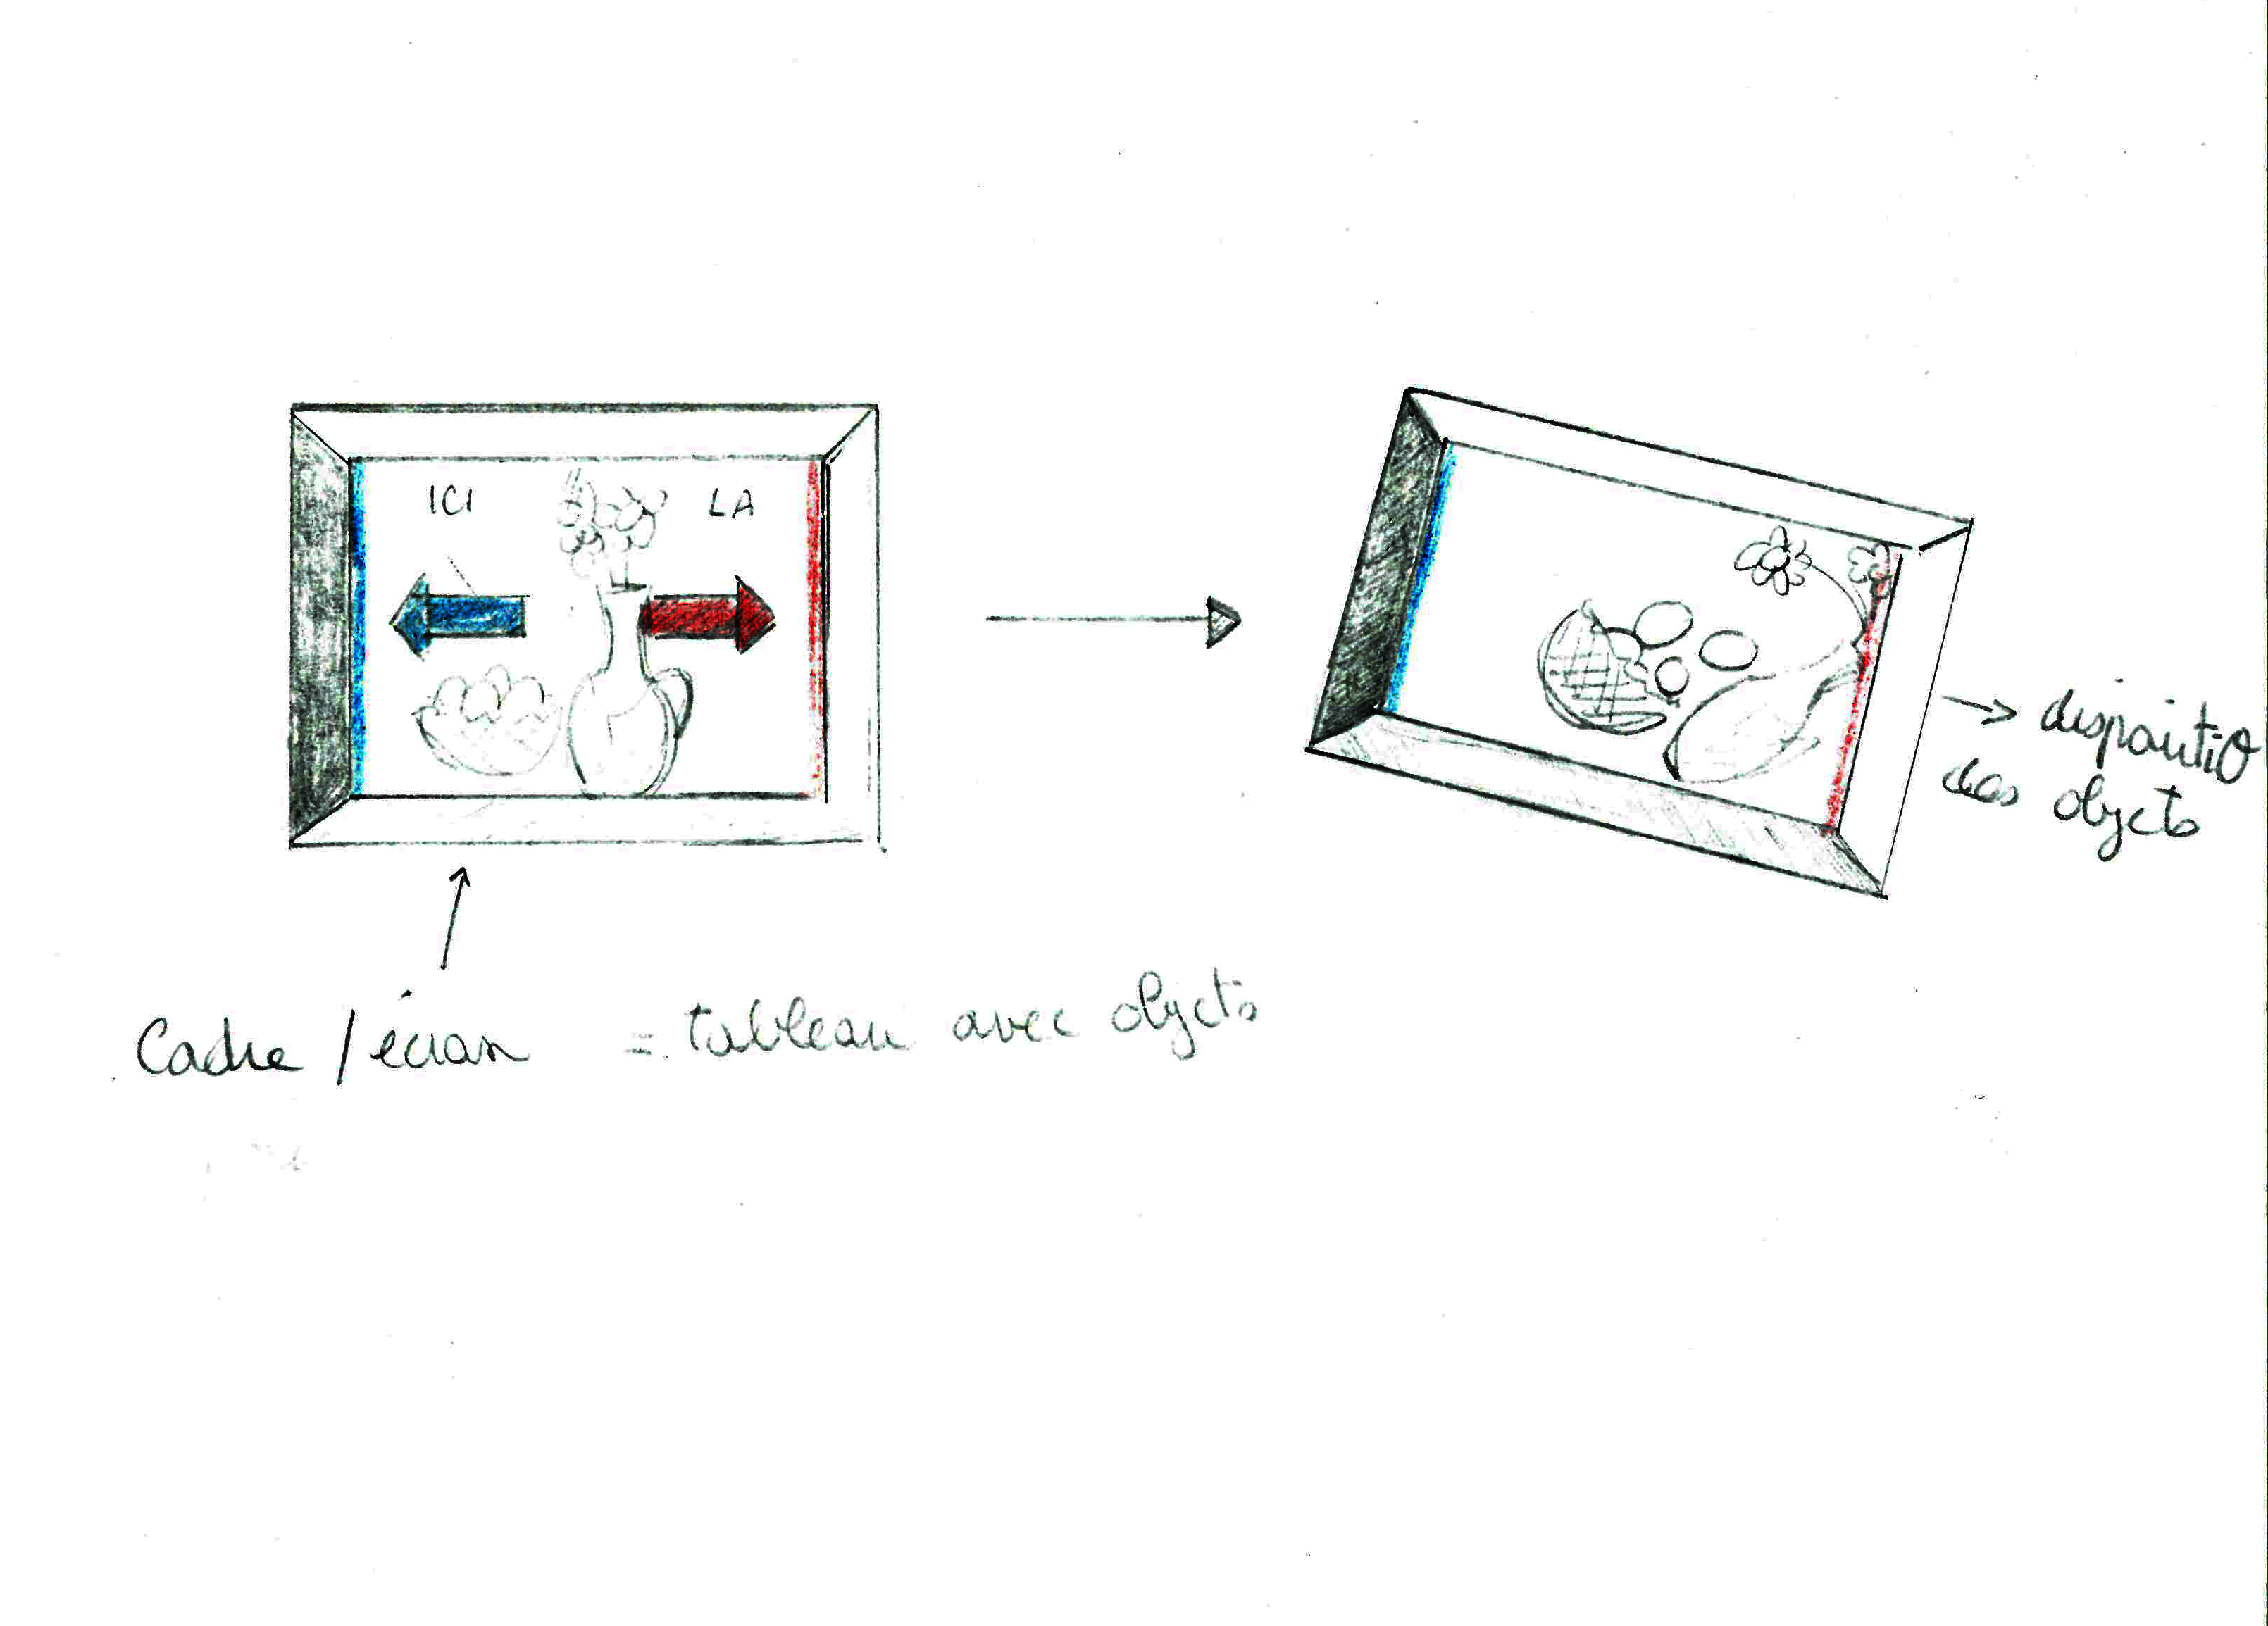 ICI
LA
disparitio
des objets
Cadre / écran = tableau avec objets